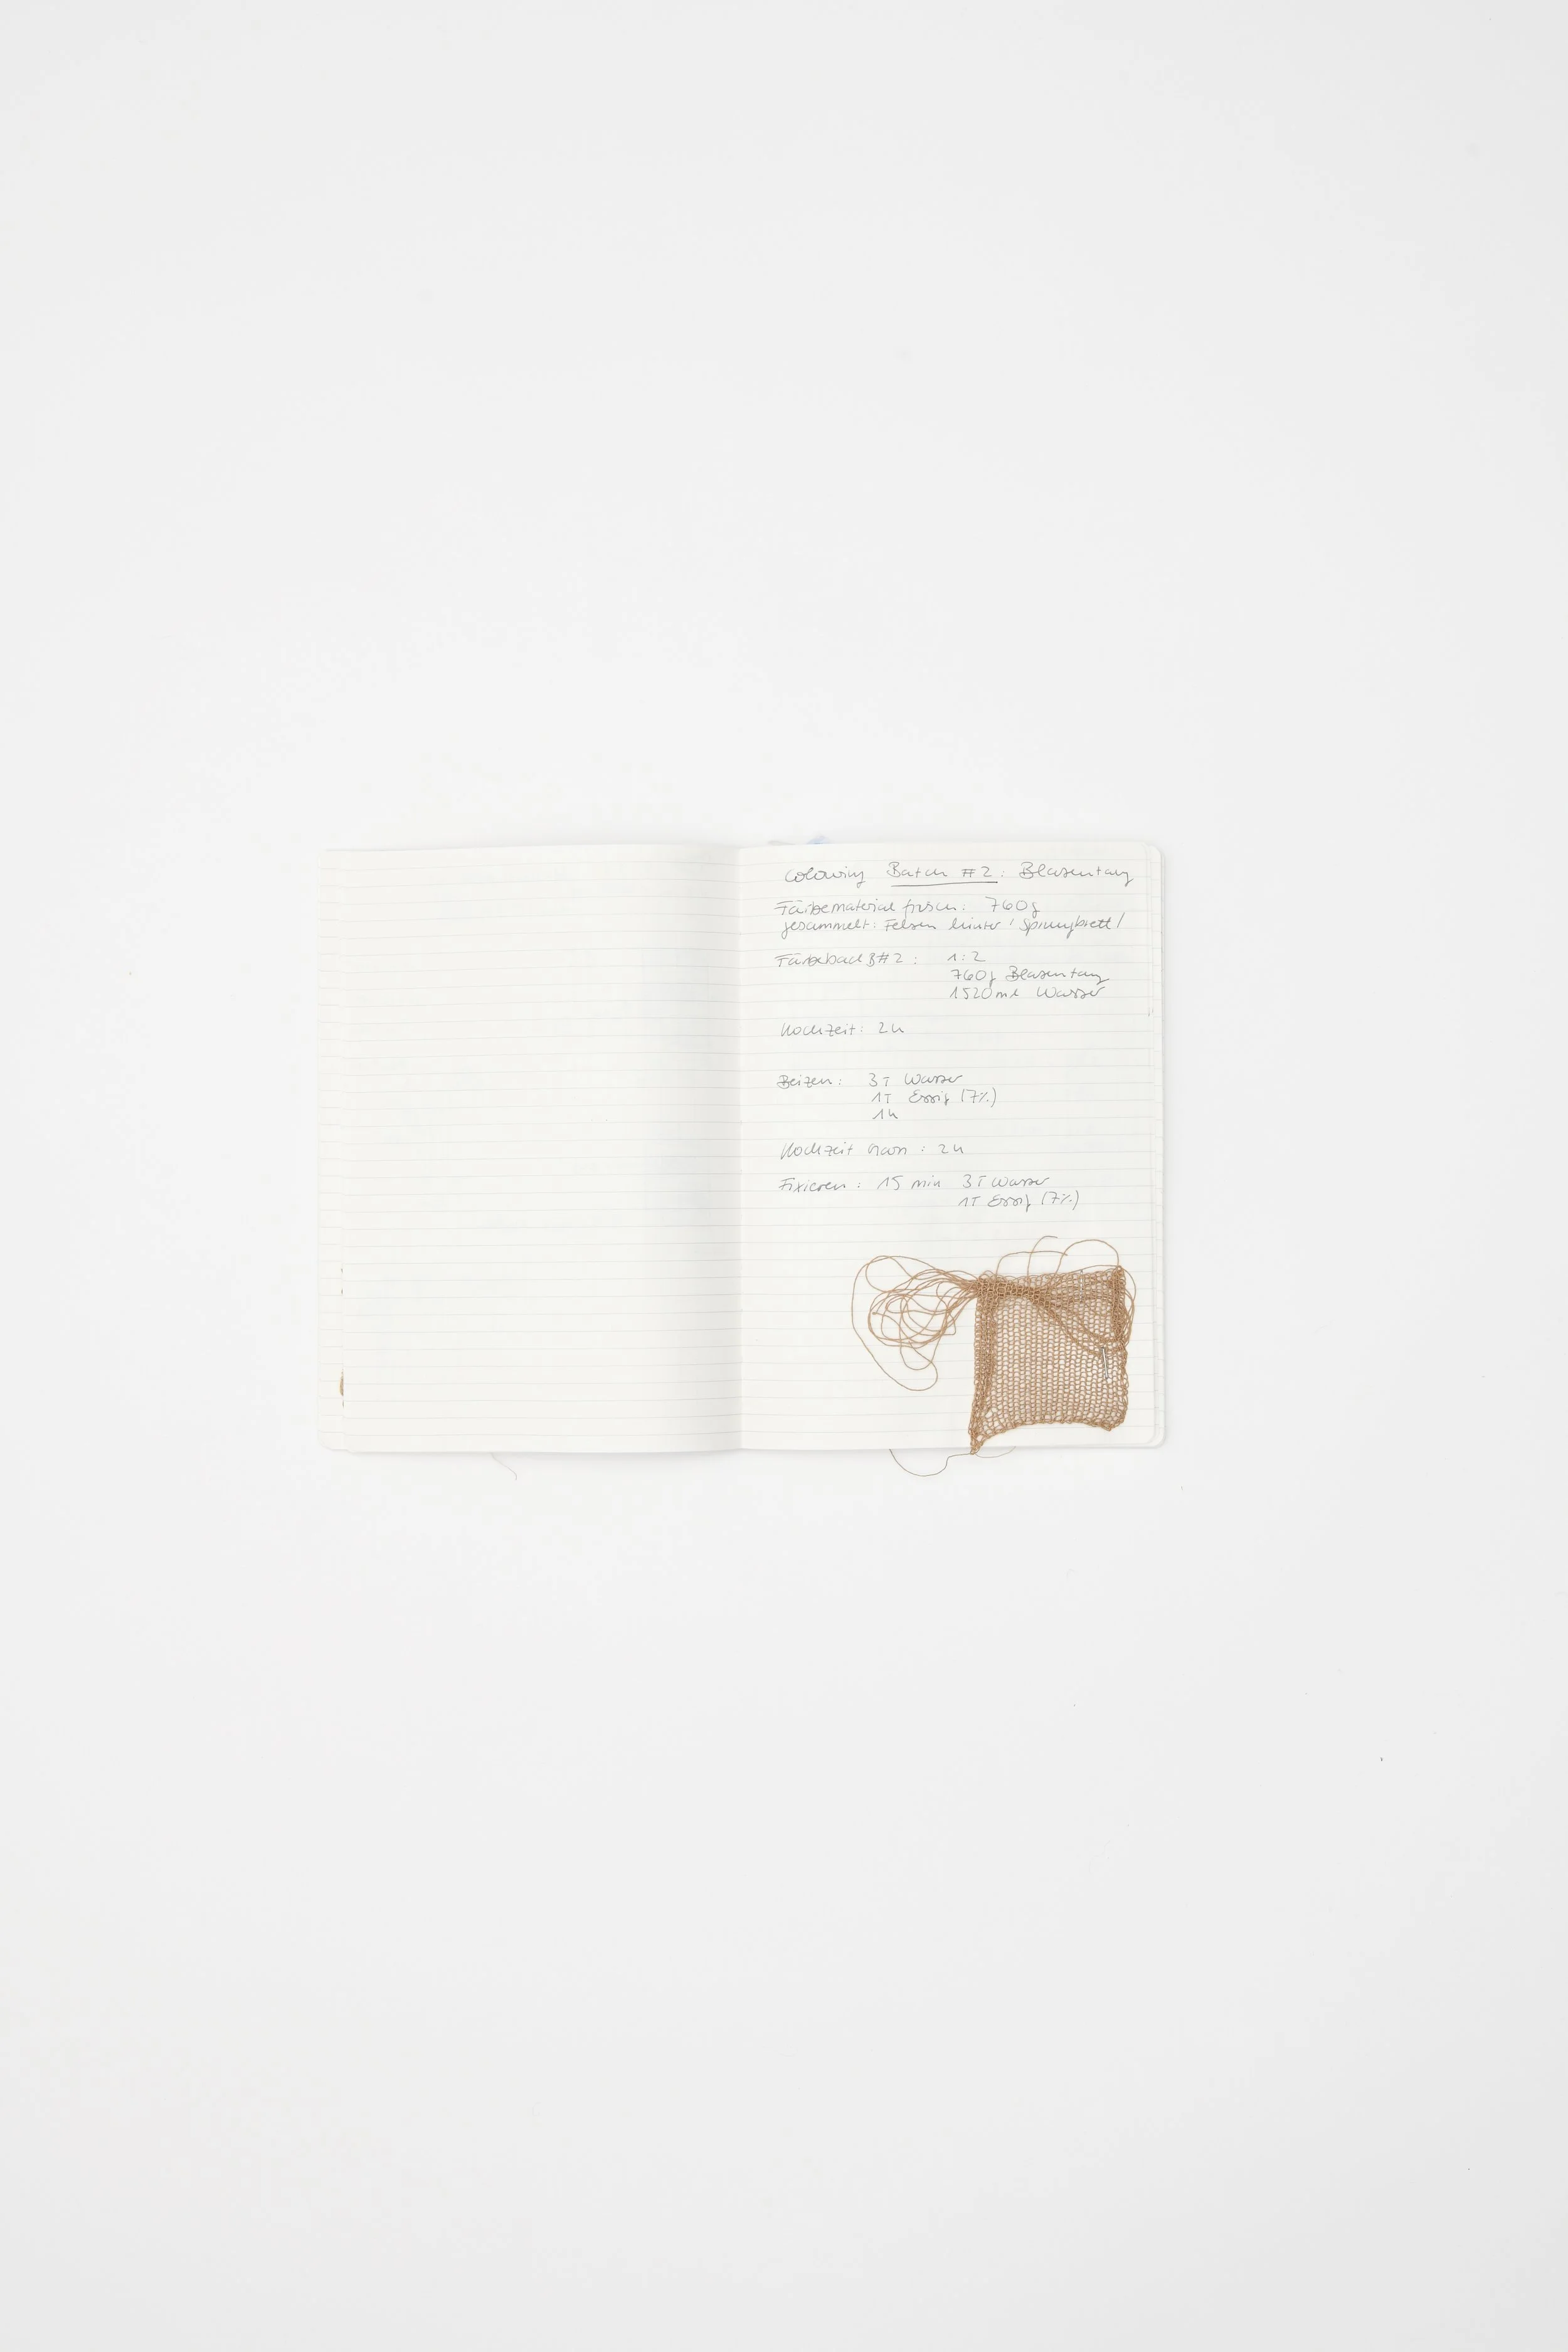 Colouring Batch #2: Blasentang
Färbematerial frisch: 760g
gesammelt: Felsen hinter 'Sprungbrett'
Färbebad B#2: 1:2
760g Blasentang
1520ml Wasser
Kochzeit: 2h
Beizen: 3T Wasser
1T Essig (7%)
1h
Kochzeit Garn: 2h
Fixieren: 15 min 3T Wasser
1T Essig (7%)